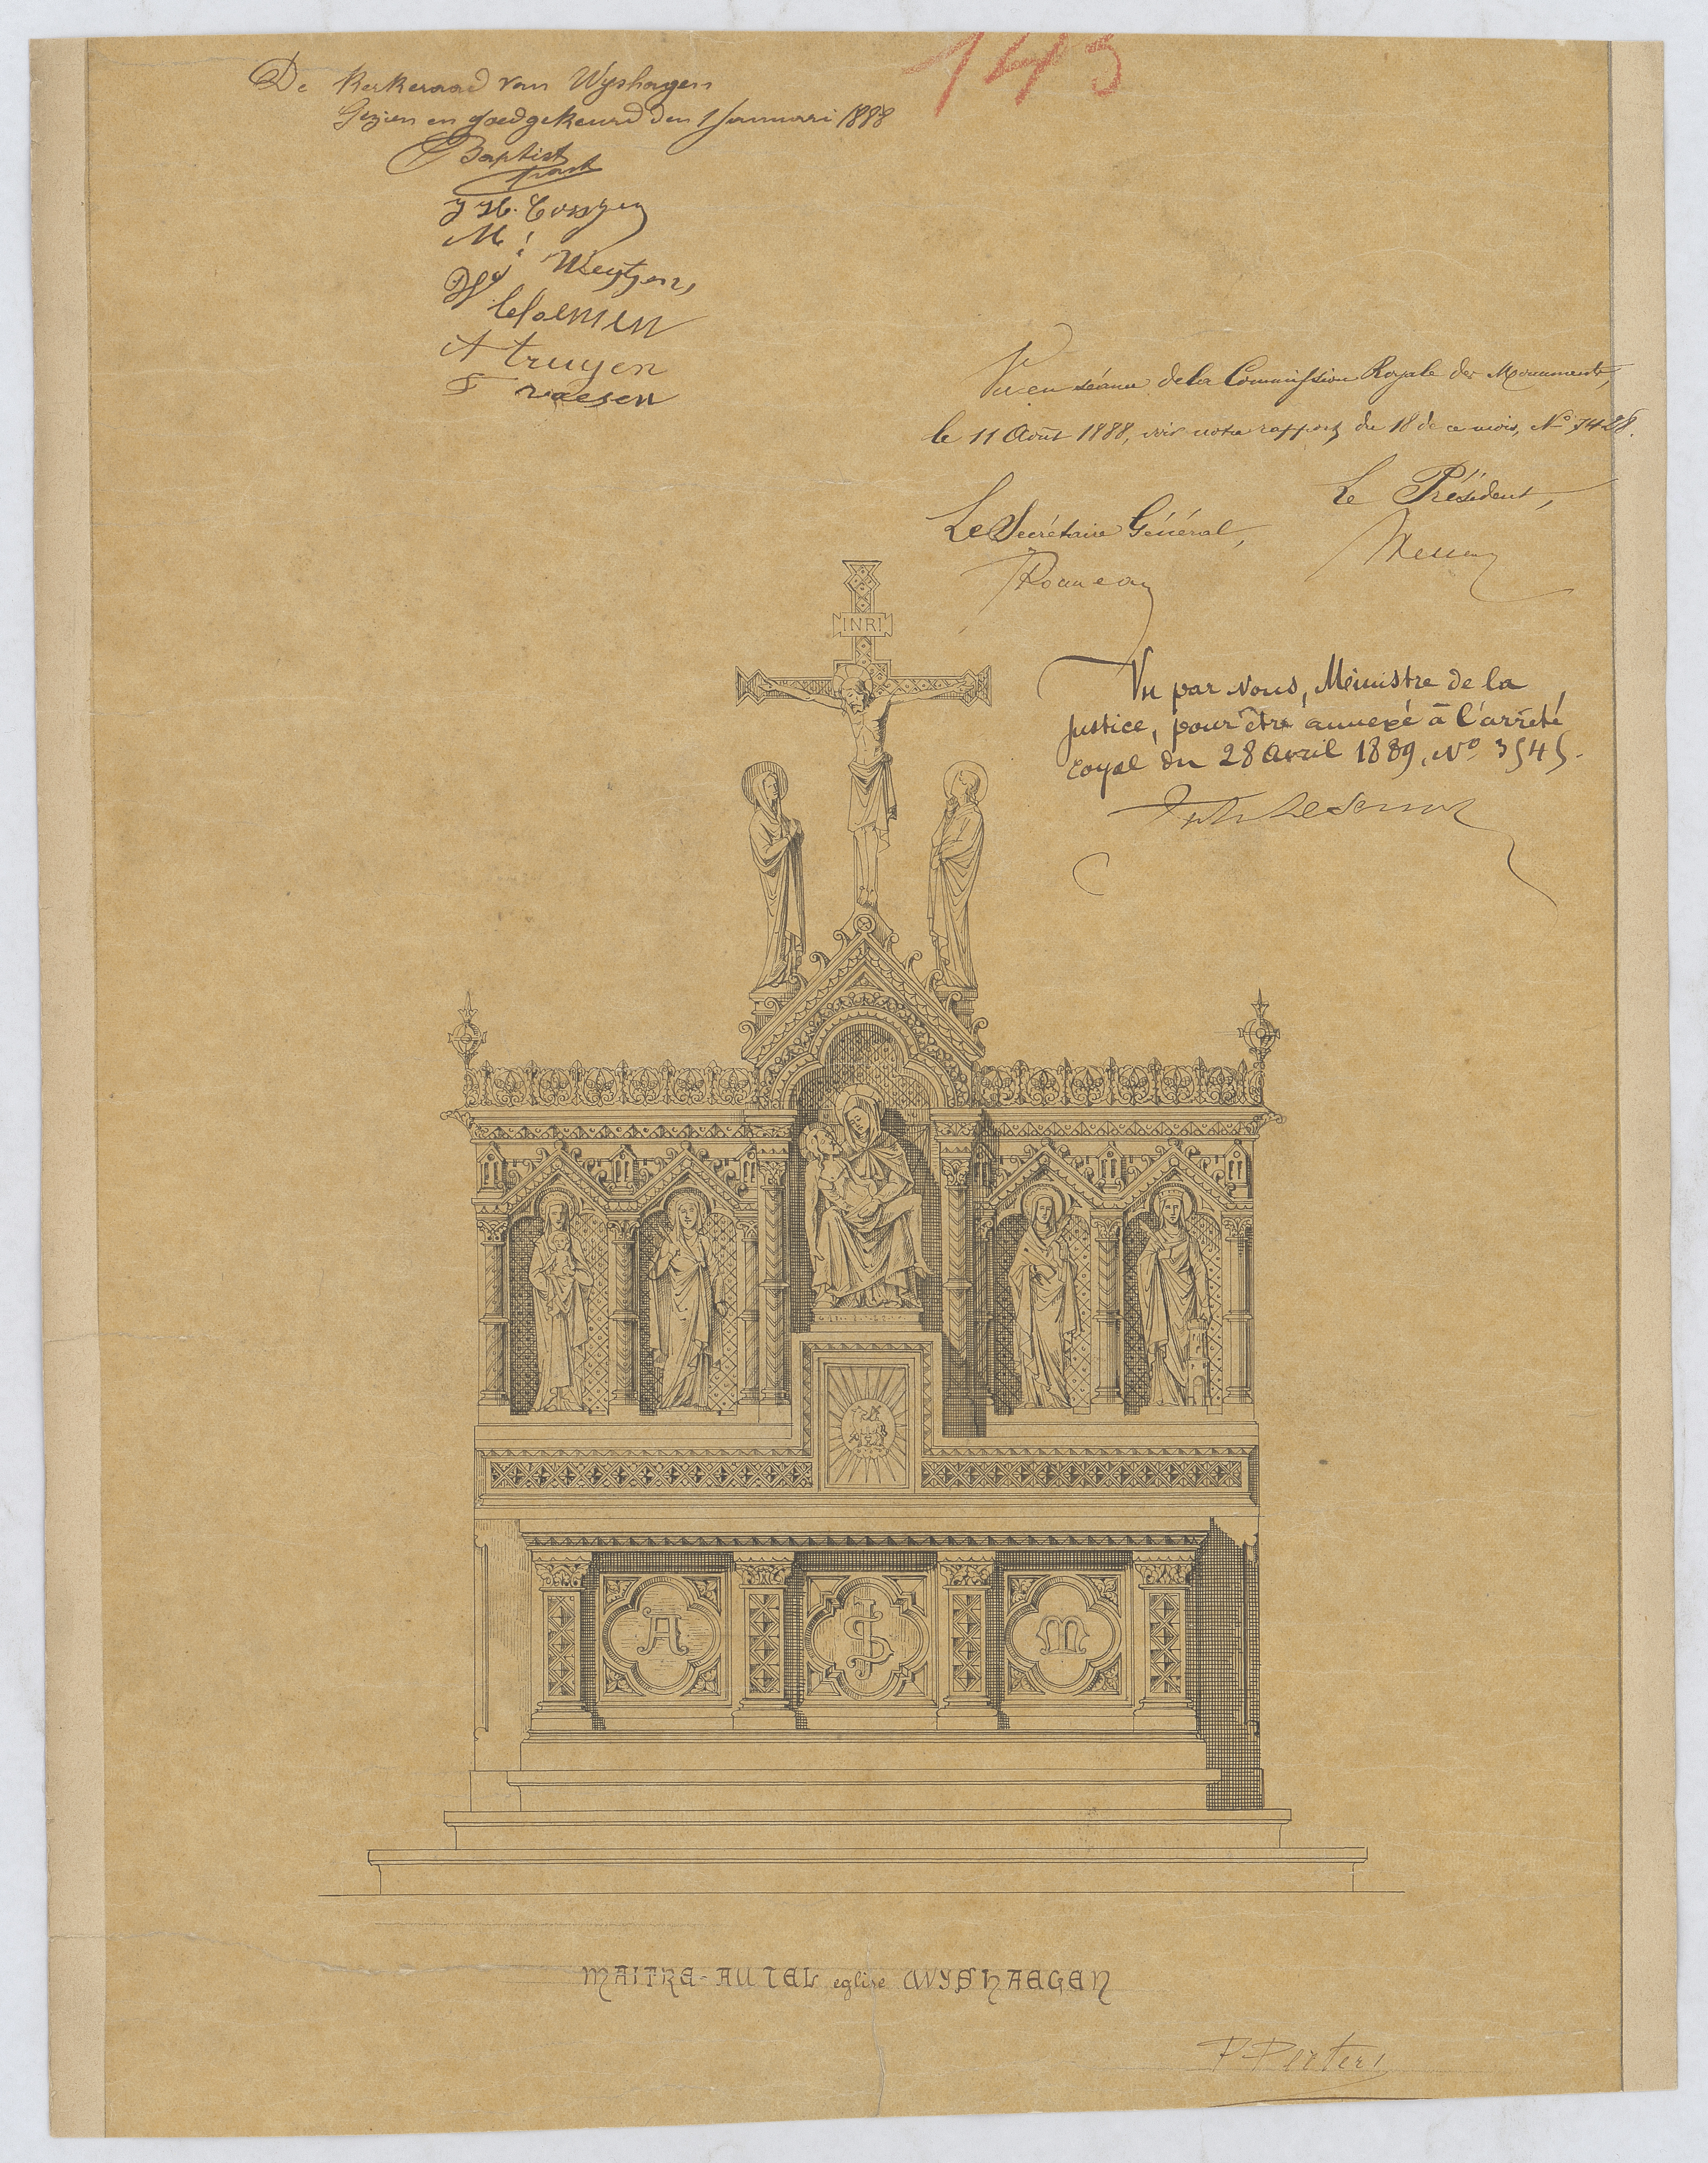 143
De Kerkeraad van Wyshagen
Gezien en goedgekeurd den 1 Januari 1888
Baptist
M. Weytjens,
A truyen
F raesen
Vu en séance de la Commission Royale des Monuments,
le 11 Août 1888, voir notre rapport du 18 de ce mois, No 7428.
Le Président,
Le Secrétaire Général,
Rousseau
Vu par Nous, Ministre de la
Justice, pour être annexé à l'arrêté
royal du 28 Avril 1889, No 3545.
INRI
A
M
MAITRE-AUTEL eglise WYSHAEGEN
P Peeters